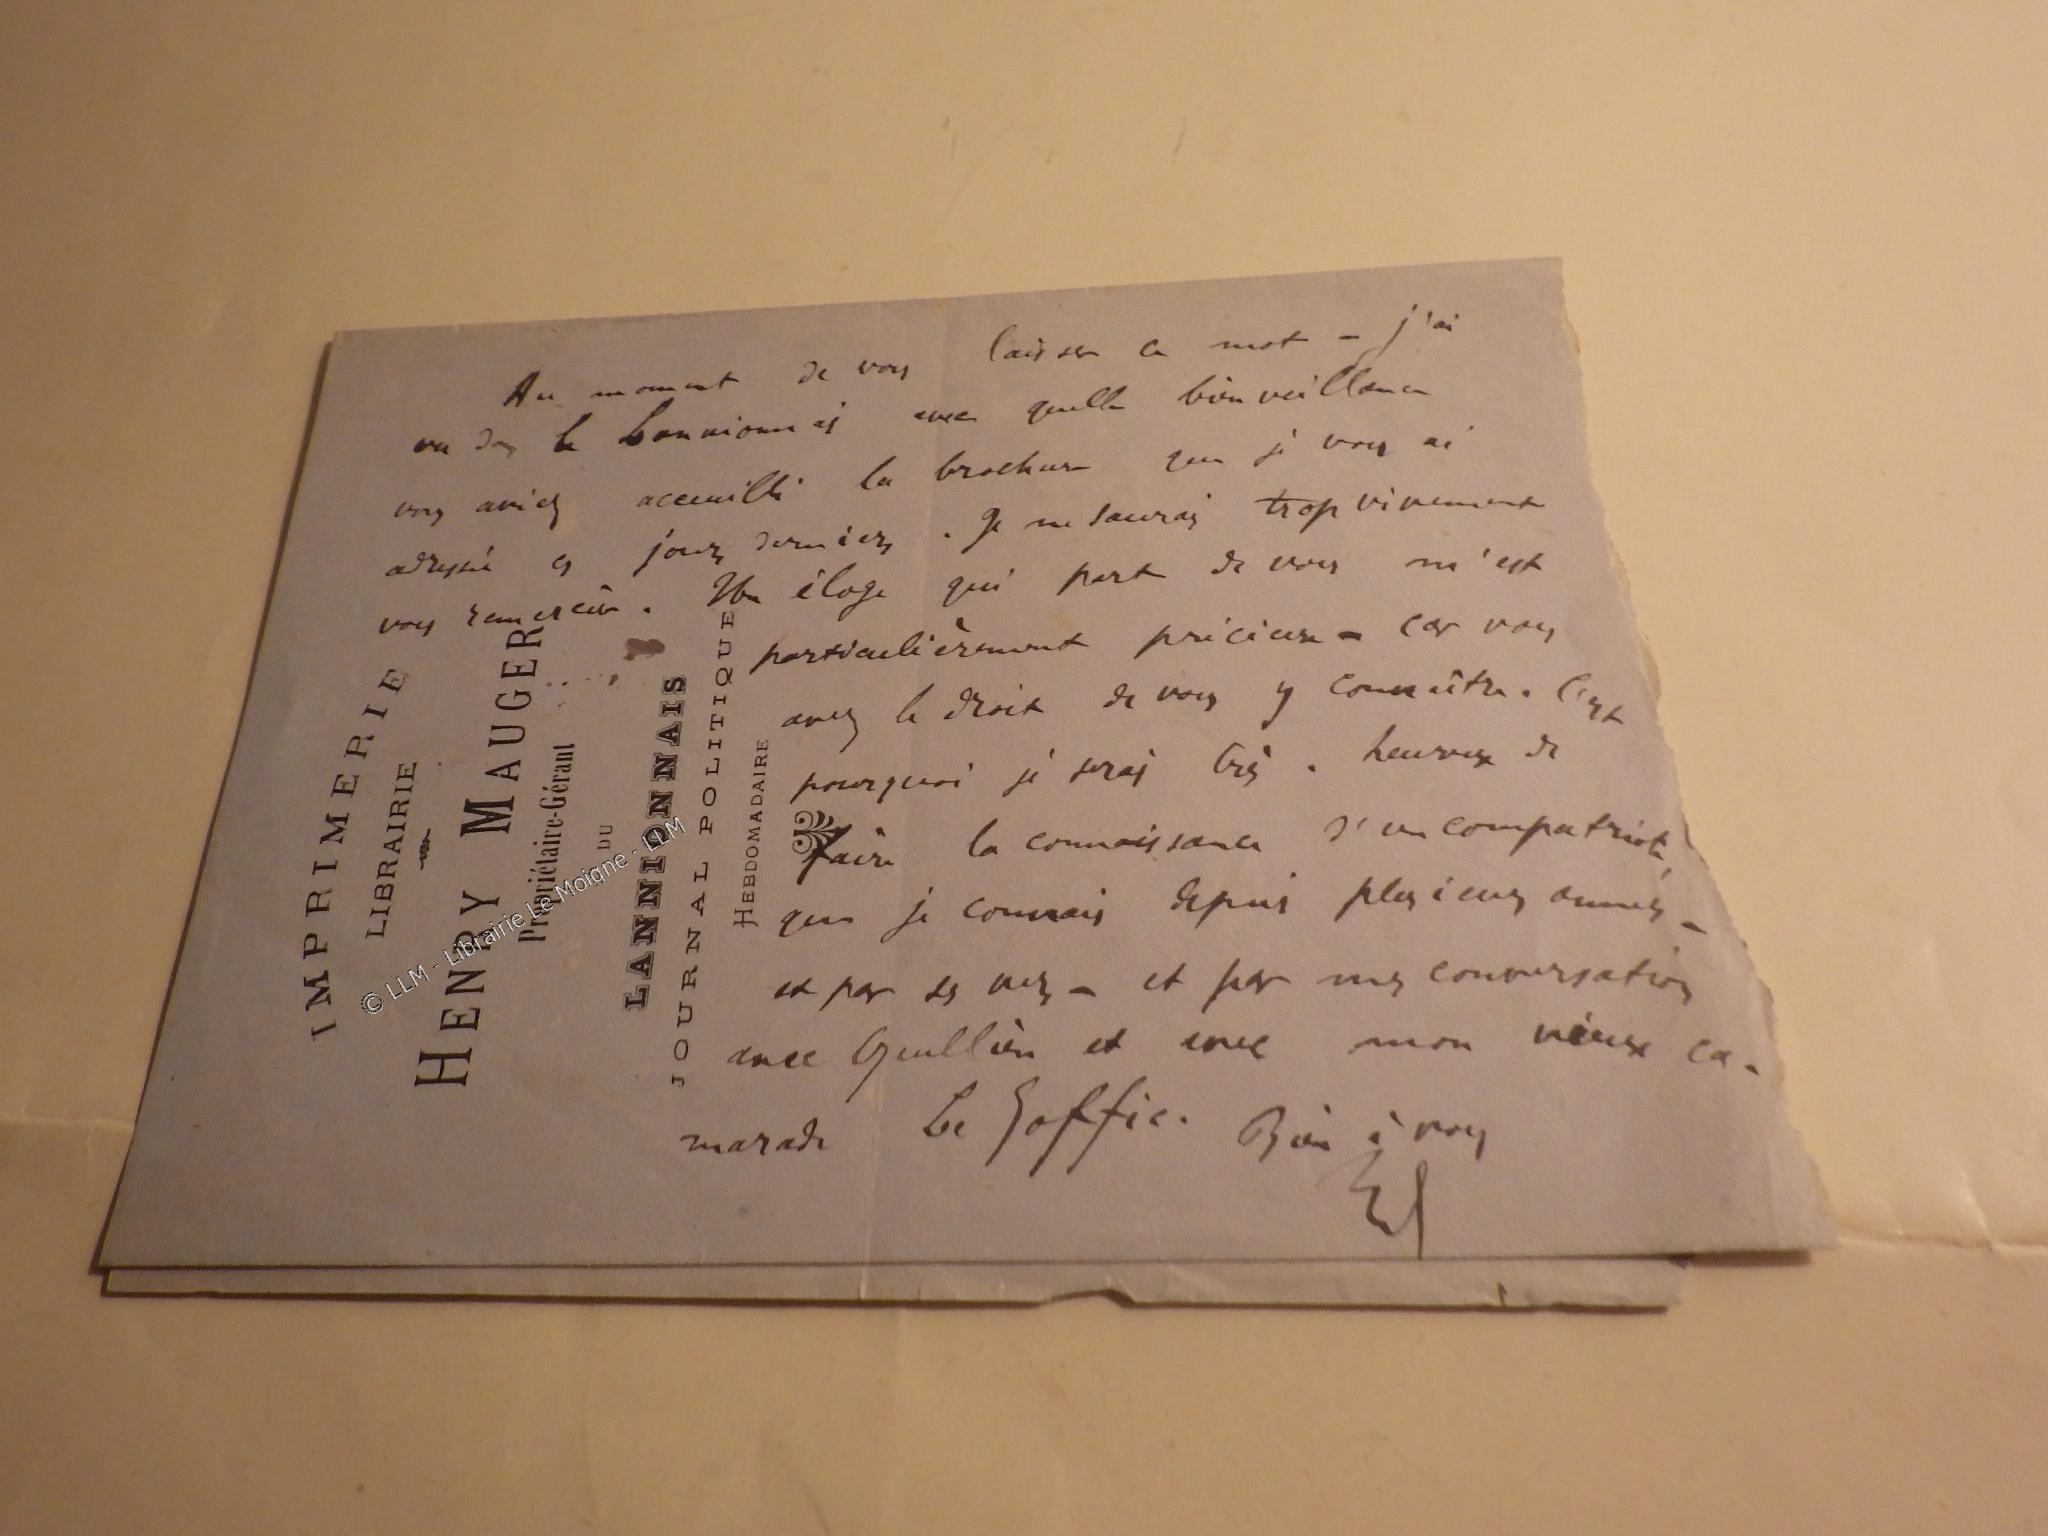 Au moment de vous laisser ce mot – j'ai
vu dans le Lannionnais avec quelle bienveillance
vous aviez accueilli la brochure que je vous ai
adressée ces jours derniers. Je ne saurais trop vivement
vous remercier. Un éloge qui part de vous m'est
particulièrement précieux – car vous
avez le droit de vous y connaître. C'est
pourquoi je serais très heureux de
faire la connaissance d'un compatriote,
que je connais depuis plusieurs années –
et par ses vers – et par mes conversations
avec Quellien et avec mon vieux ca-
marade Le Goffic. Bien à vous
IMPRIMERIE
LIBRAIRIE
HENRY MAUGER
Propriétaire-Gérant
DU
LANNIONNAIS
JOURNAL POLITIQUE
HEBDOMADAIRE
© LLM - Librairie Le Moigne - LLM